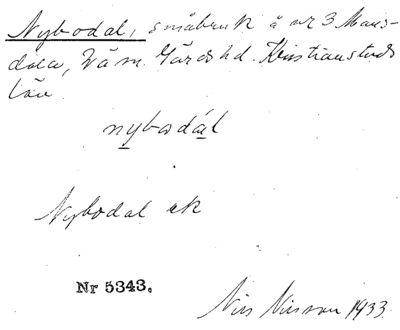 Nybodal, småbruk å nr 3 Mans-
dala, Vä sn. Gärds hd. Kristianstads
län.
nybodal
Nybodal uk
Nr 5343.
Nils Nilsson 1933.